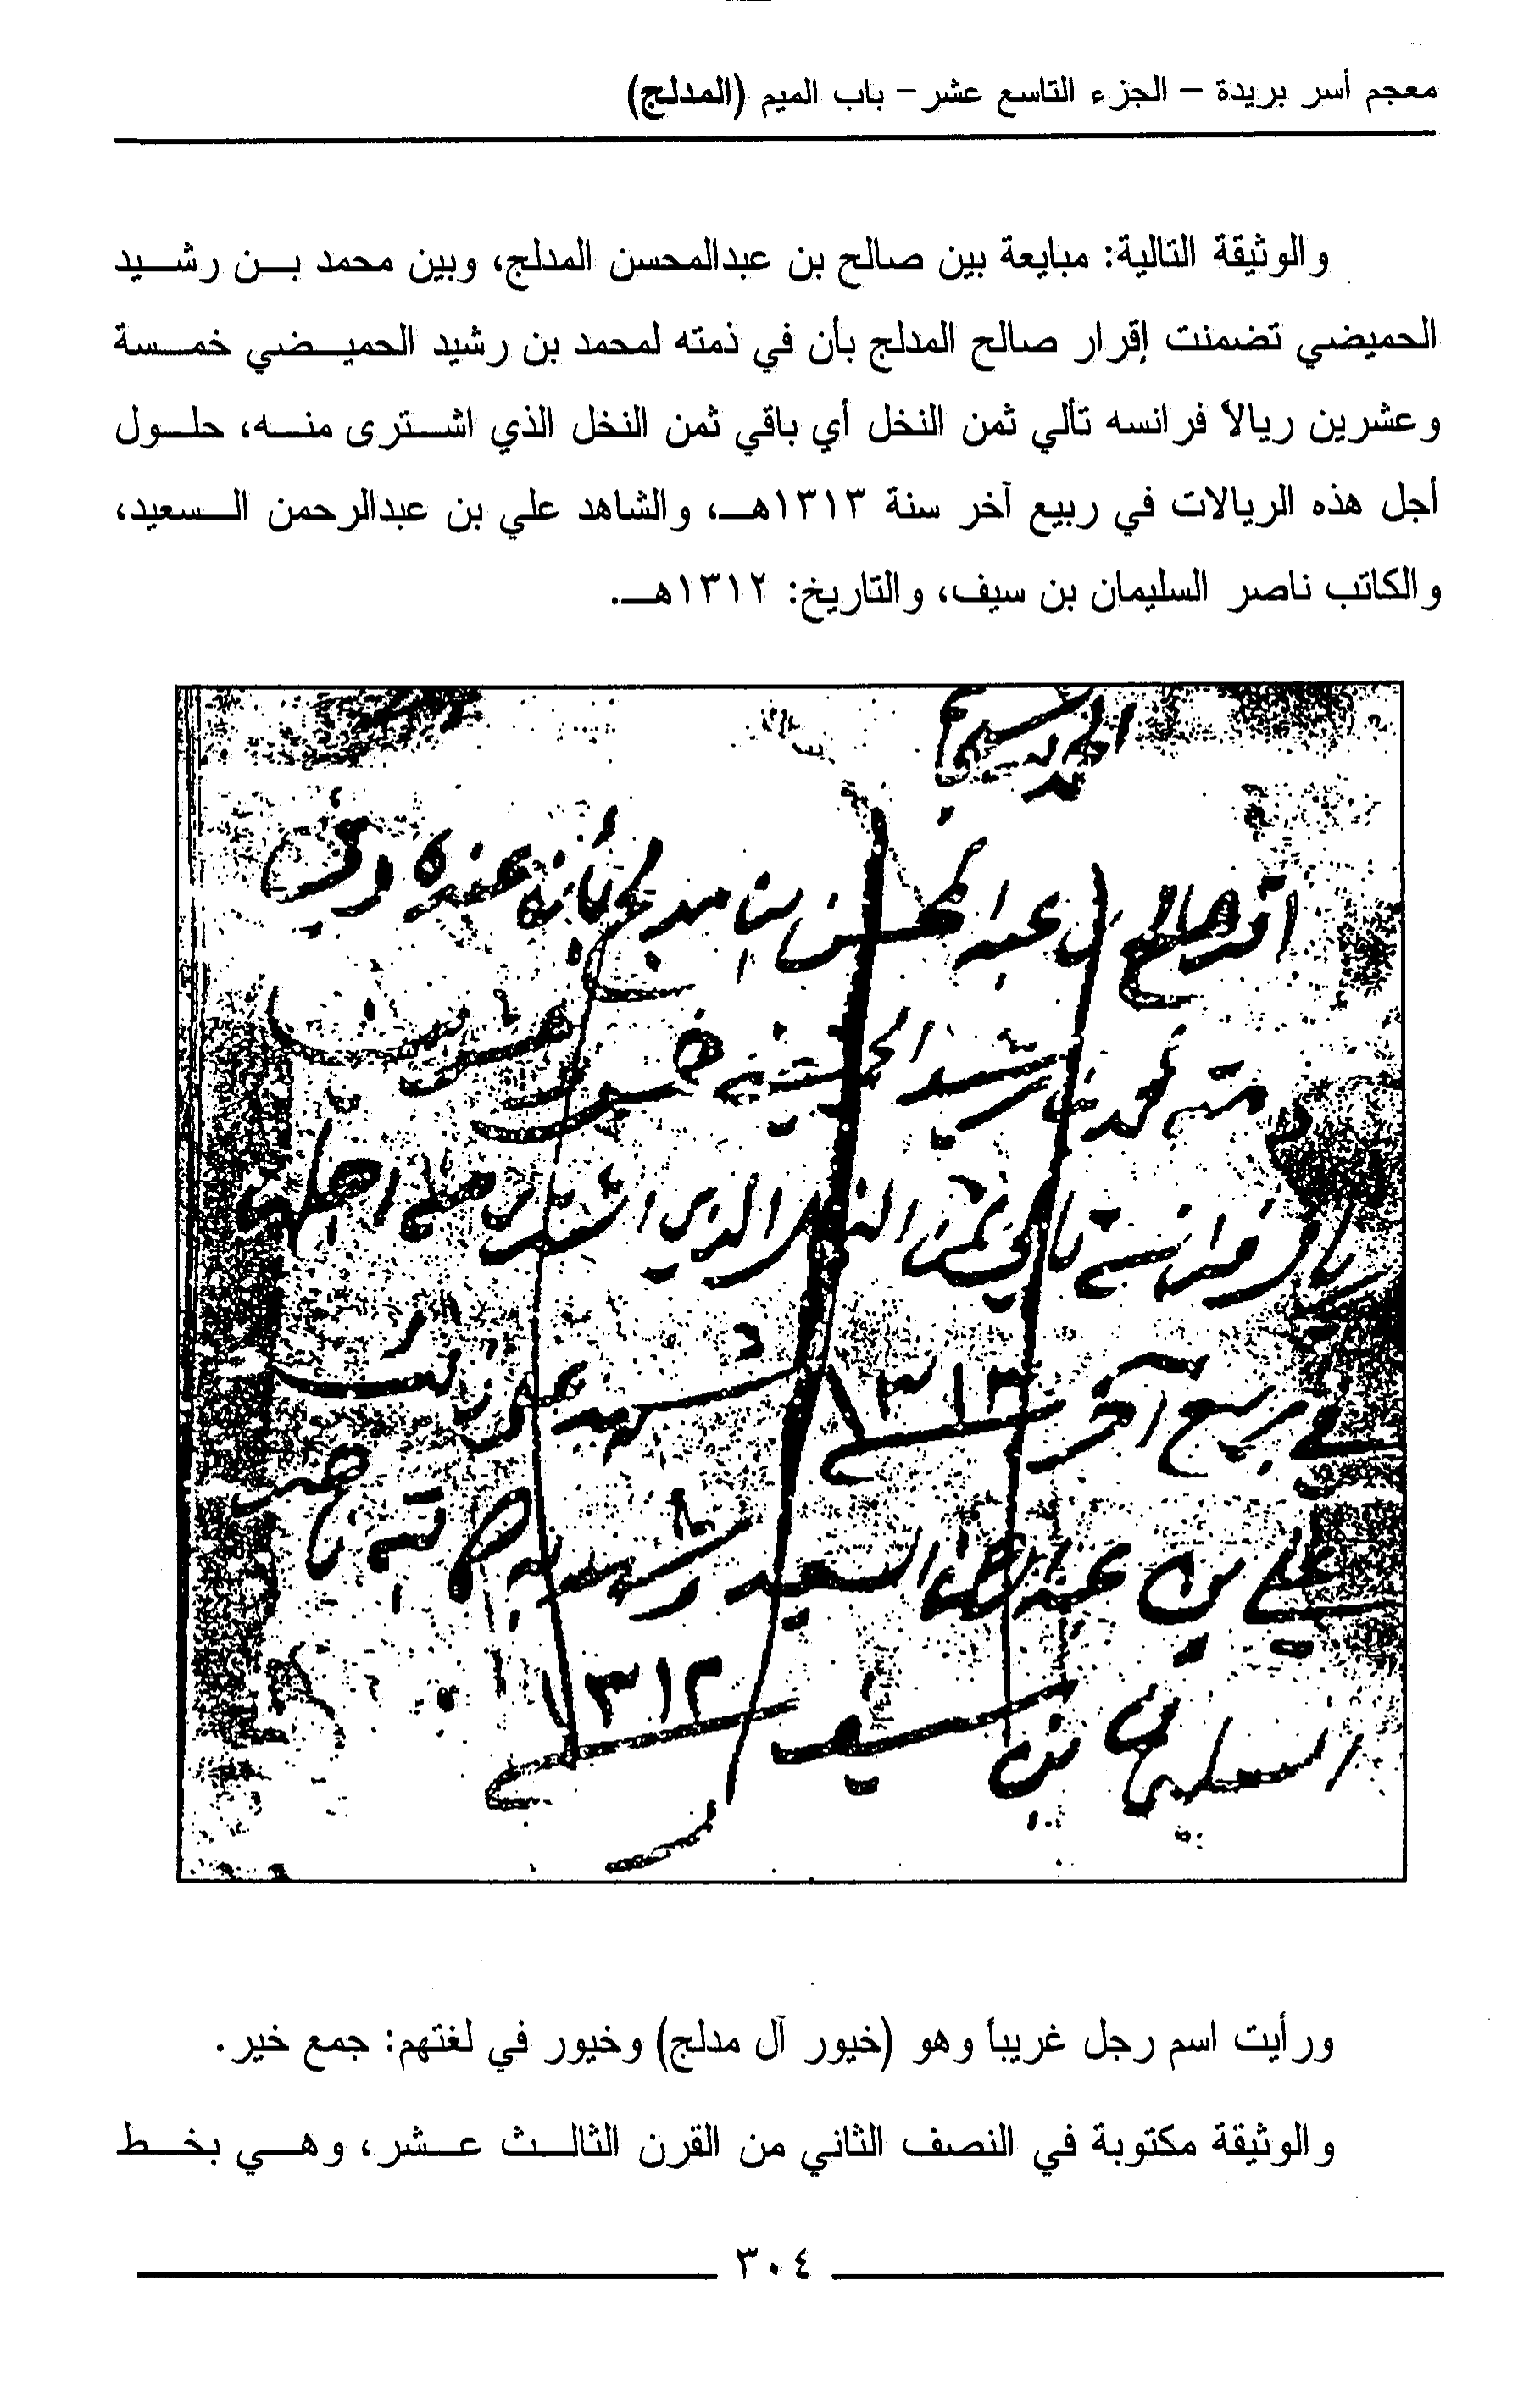 معجم أسر بريدة – الجزء التاسع عشر – باب الميم (المدلج)
والوثيقة التالية: مبايعة بين صالح بن عبدالمحسن المدلج، وبين محمد بن رشيد
الحميضي تضمنت إقرار صالح المدلج بأن في ذمته لمحمد بن رشيد الحميضي خمسة
وعشرين ريالاً فرانسه تألي ثمن النخل أي باقي ثمن النخل الذي اشترى منه، حلول
أجل هذه الريالات في ربيع آخر سنة ١٣١٣هـ، والشاهد علي بن عبدالرحمن السعيد،
والكاتب ناصر السليمان بن سيف، والتاريخ: ١٣١٢هـ.
الحمد لله
اقر صالح بن عبد المحسن ابن مدلج بأنه عنده وفي
ذمته لمحمد بن رشيد الحميضي خمسة وعشرين
ريال فرانسه تالي ثمن النخل الذي اشترى
في ربيع آخر سنة ١٣١٣ شهد على ذلك
علي بن عبد الرحمن السعيد وشهد به كاتبه ناصر
السليمان بن سيف سنة ١٣١٢
ورأيت اسم رجل غريباً وهو (خيور آل مدلج) وخيور في لغتهم: جمع خير.
والوثيقة مكتوبة في النصف الثاني من القرن الثالث عشر، وهي بخط
٣٠٤